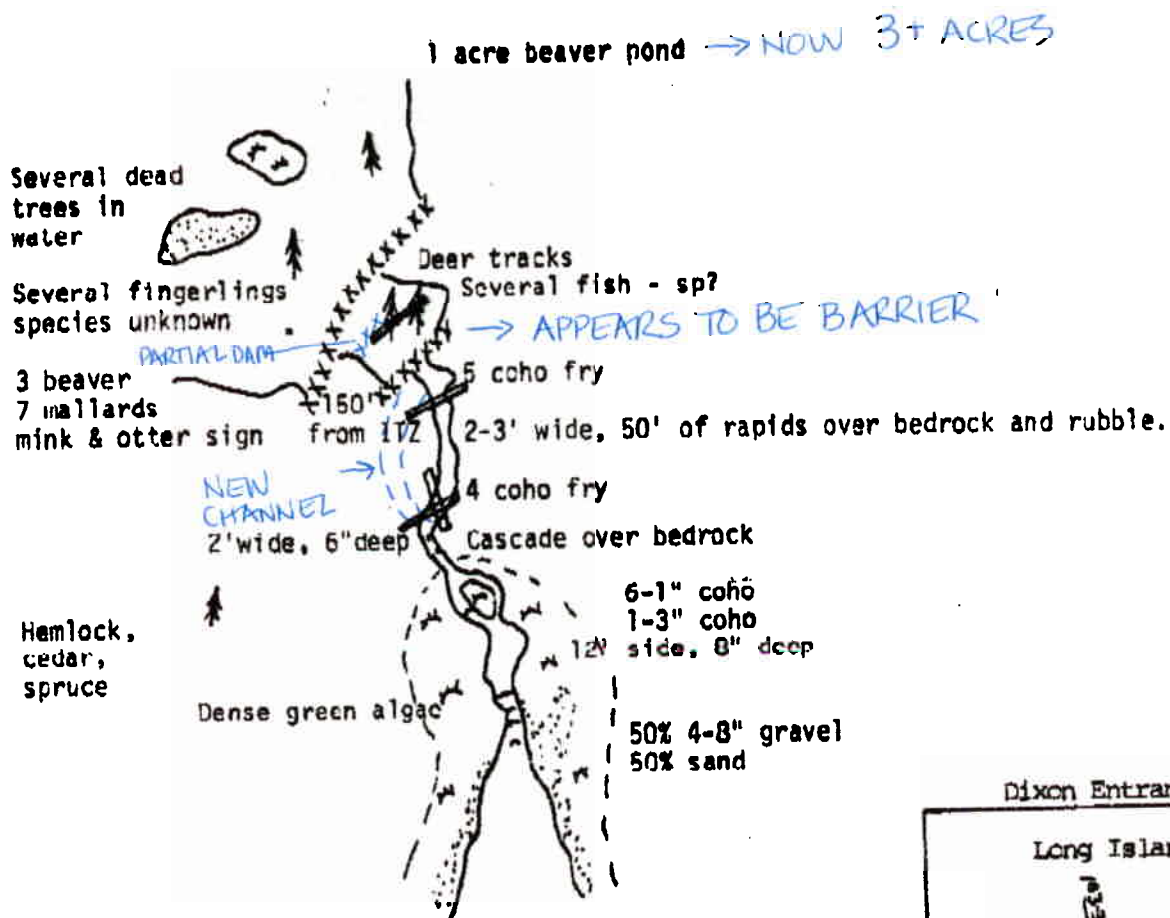 1 acre beaver pond → NOW 3+ ACRES
Several dead
trees in
water
Deer tracks
Several fish - sp?
Several fingerlings
species unknown
→ APPEARS TO BE BARRIER
PARTIAL DAM
3 beaver
7 mallards
mink & otter sign
5 coho fry
150'
from ITZ
2-3' wide, 50' of rapids over bedrock and rubble.
NEW
CHANNEL
4 coho fry
2'wide, 6"deep
Cascade over bedrock
6-1" coho
1-3" coho
side, 8" deep
Hemlock,
cedar,
spruce
Dense green algae
50% 4-8" gravel
50% sand
Dixon Entran
Long Islan